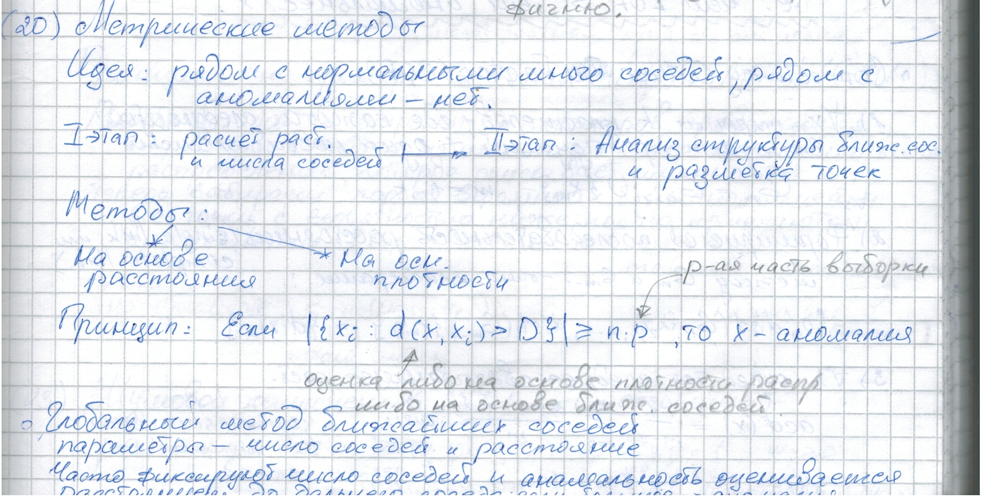 фичню.
(20) Метрические методы
Идея: рядом с нормальными много соседей, рядом с
аномалиями – нет.
I этап: расчёт раст. II этап: Анализ структуры ближ. сос.
и числа соседей и разметка точек
Методы:
На основе На осн.
расстояния плотности
p-ая часть выборки
Принцип: Если |{xᵢ : d(x, xᵢ) > D}| ≥ n·p, то x – аномалия
оценка либо на основе плотности распр
либо на основе ближ. соседей
Глобальный метод ближайших соседей
параметры – число соседей и расстояние
Часто фиксируют число соседей и аномальность оценивается